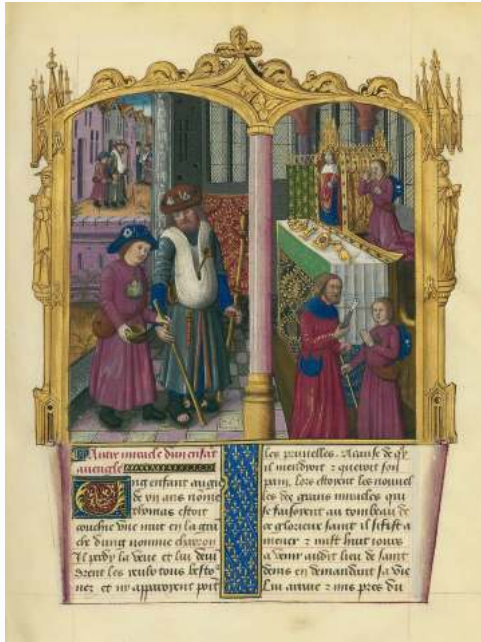 Autre miracle dun enfāt
aveugle
Ung enfant aāgie
de vii ans nome
thomas estoit
couchie une nuit en la grā
che dung nomme charron
Il perdy la veue et lui devī
drent les yeulx tous besto
nez et ny apparoient poīt
les prunelles. A cause de qͥ
il mendioit ⁊ queroit son
pain. Lors estoient les nouvel
les des grans miracles qui
se faisoient au tombeau de
ce glorieux saint il se fist a
mener ⁊ mist huit iours
a venir audit lieu de saint
denis en demandant sa vie
Lui arrive ⁊ mis pres du